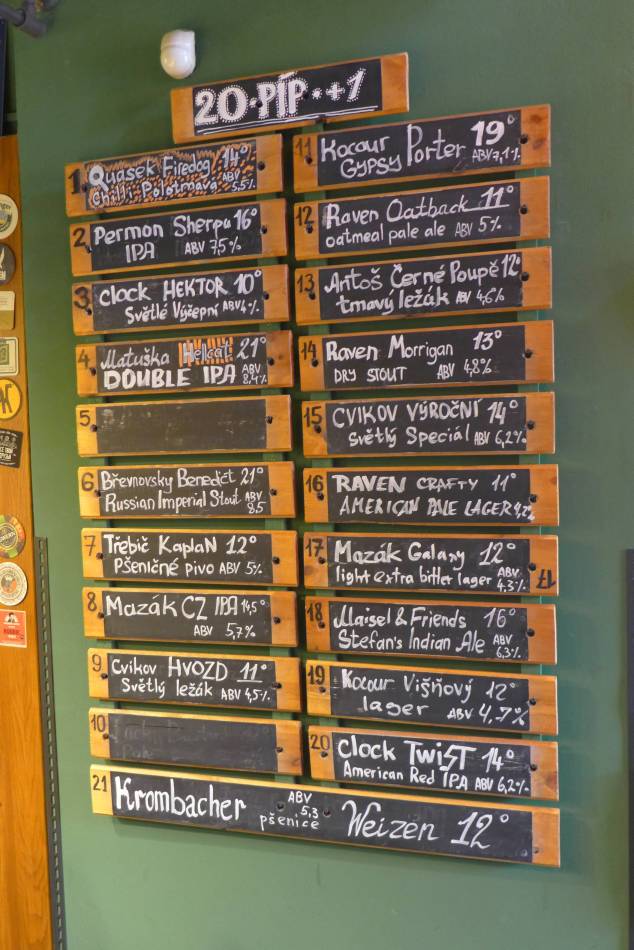 20·PÍP·+1
1
Quasek Firedog 14°
Chilli Polotmavý ABV 5.5%
2
Permon Sherpa 16°
IPA ABV 7,5%
3
Clock HEKTOR 10°
Světlé Výčepní ABV 4%
4
Matuška Hellcat 21°
DOUBLE IPA ABV 8,4%
5
6
Břevnovsky Benedict 21°
Russian Imperial Stout ABV 8.5
7
Třebič Kaplan 12°
Pšeničné pivo ABV 5%
8
Mazák CZ IPA 14,5°
ABV 5,7%
9
Cvikov HVOZD 11°
Světlý ležák ABV 4,5%
10
11
Kocour Porter 19°
GYPSY ABV 7,1%
12
Raven Oatback 11°
oatmeal pale ale ABV 5%
13
Antoš Černé Poupě 12°
tmavý ležák ABV 4,6%
14
Raven Morrigan 13°
DRY STOUT ABV 4,8%
15
CVIKOV VÝROČNÍ 14°
Světlý Speciál ABV 6,2%
16
RAVEN CRAFTY 11°
AMERICAN PALE LAGER 4,2%
17
Mazák Galaxy 12°
light extra bitter lager ABV 4.3%
17
18
Maisel & Friends 16°
Stefan's Indian Ale ABV 6,3%
19
Kocour Višňový 12°
lager ABV 4,7%
20
Clock TwiST 14°
American Red IPA ABV 6,2%
21
Krombacher ABV 5,3 pšenice Weizen 12°